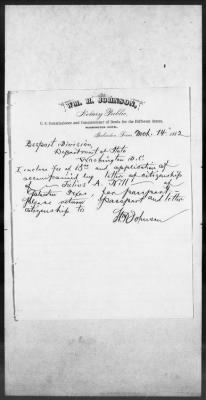 WM. H. JOHNSON,
Notary Public,
U. S. Commissioner and Commissioner of Deeds for the Different States.
Galveston, Texas, Mch. 14" 1882
Department of State
Washington D.C.
I inclose fee of and application
accompanied by letter of citizenship
of Julius A. of
Galveston Texas, for passport
Please return passport and letter
citizenship to
WHJohnson